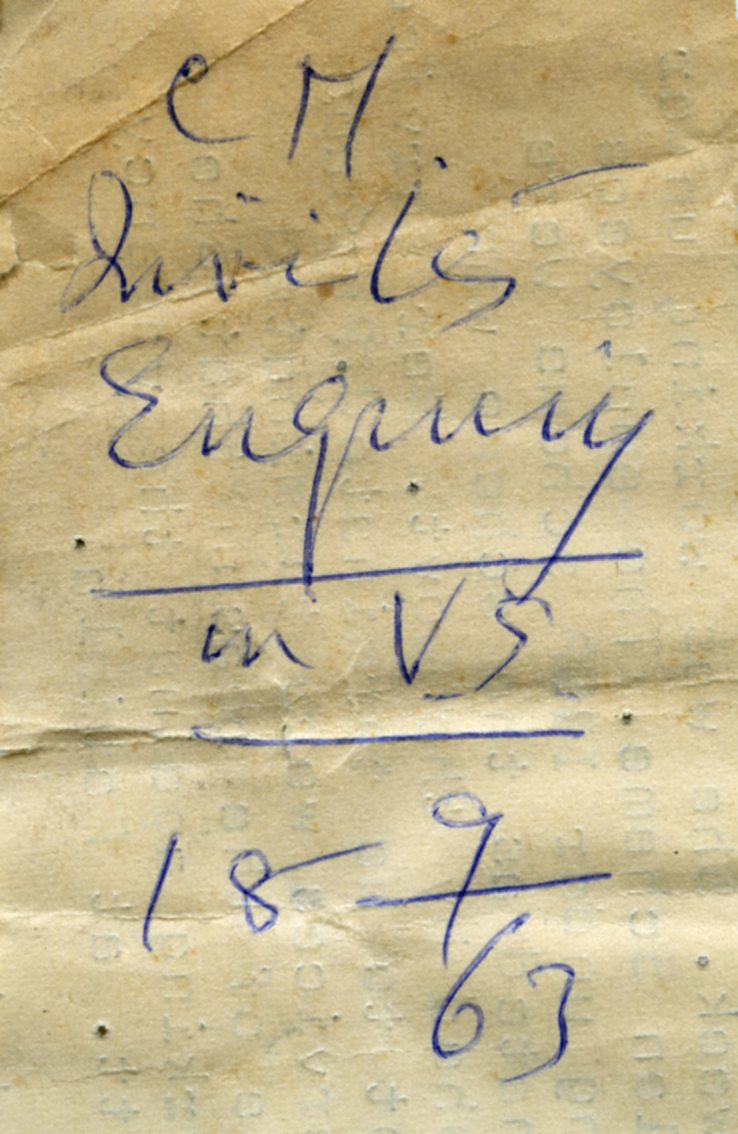 C M
Invites
Enquiry
in VS
18-9
63